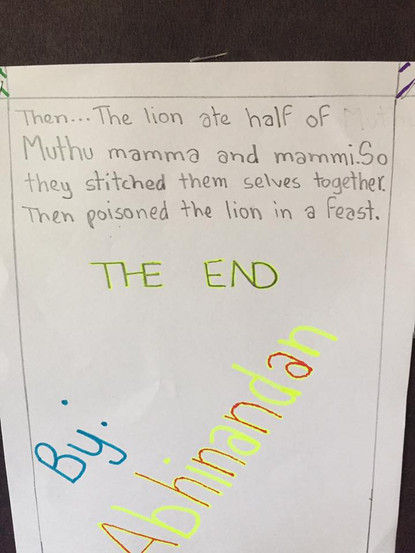 Then... The lion ate half of
Muthu mamma and mammi. So
they stitched them selves together.
Then poisoned the lion in a feast.
THE END
By:
Abhinandan